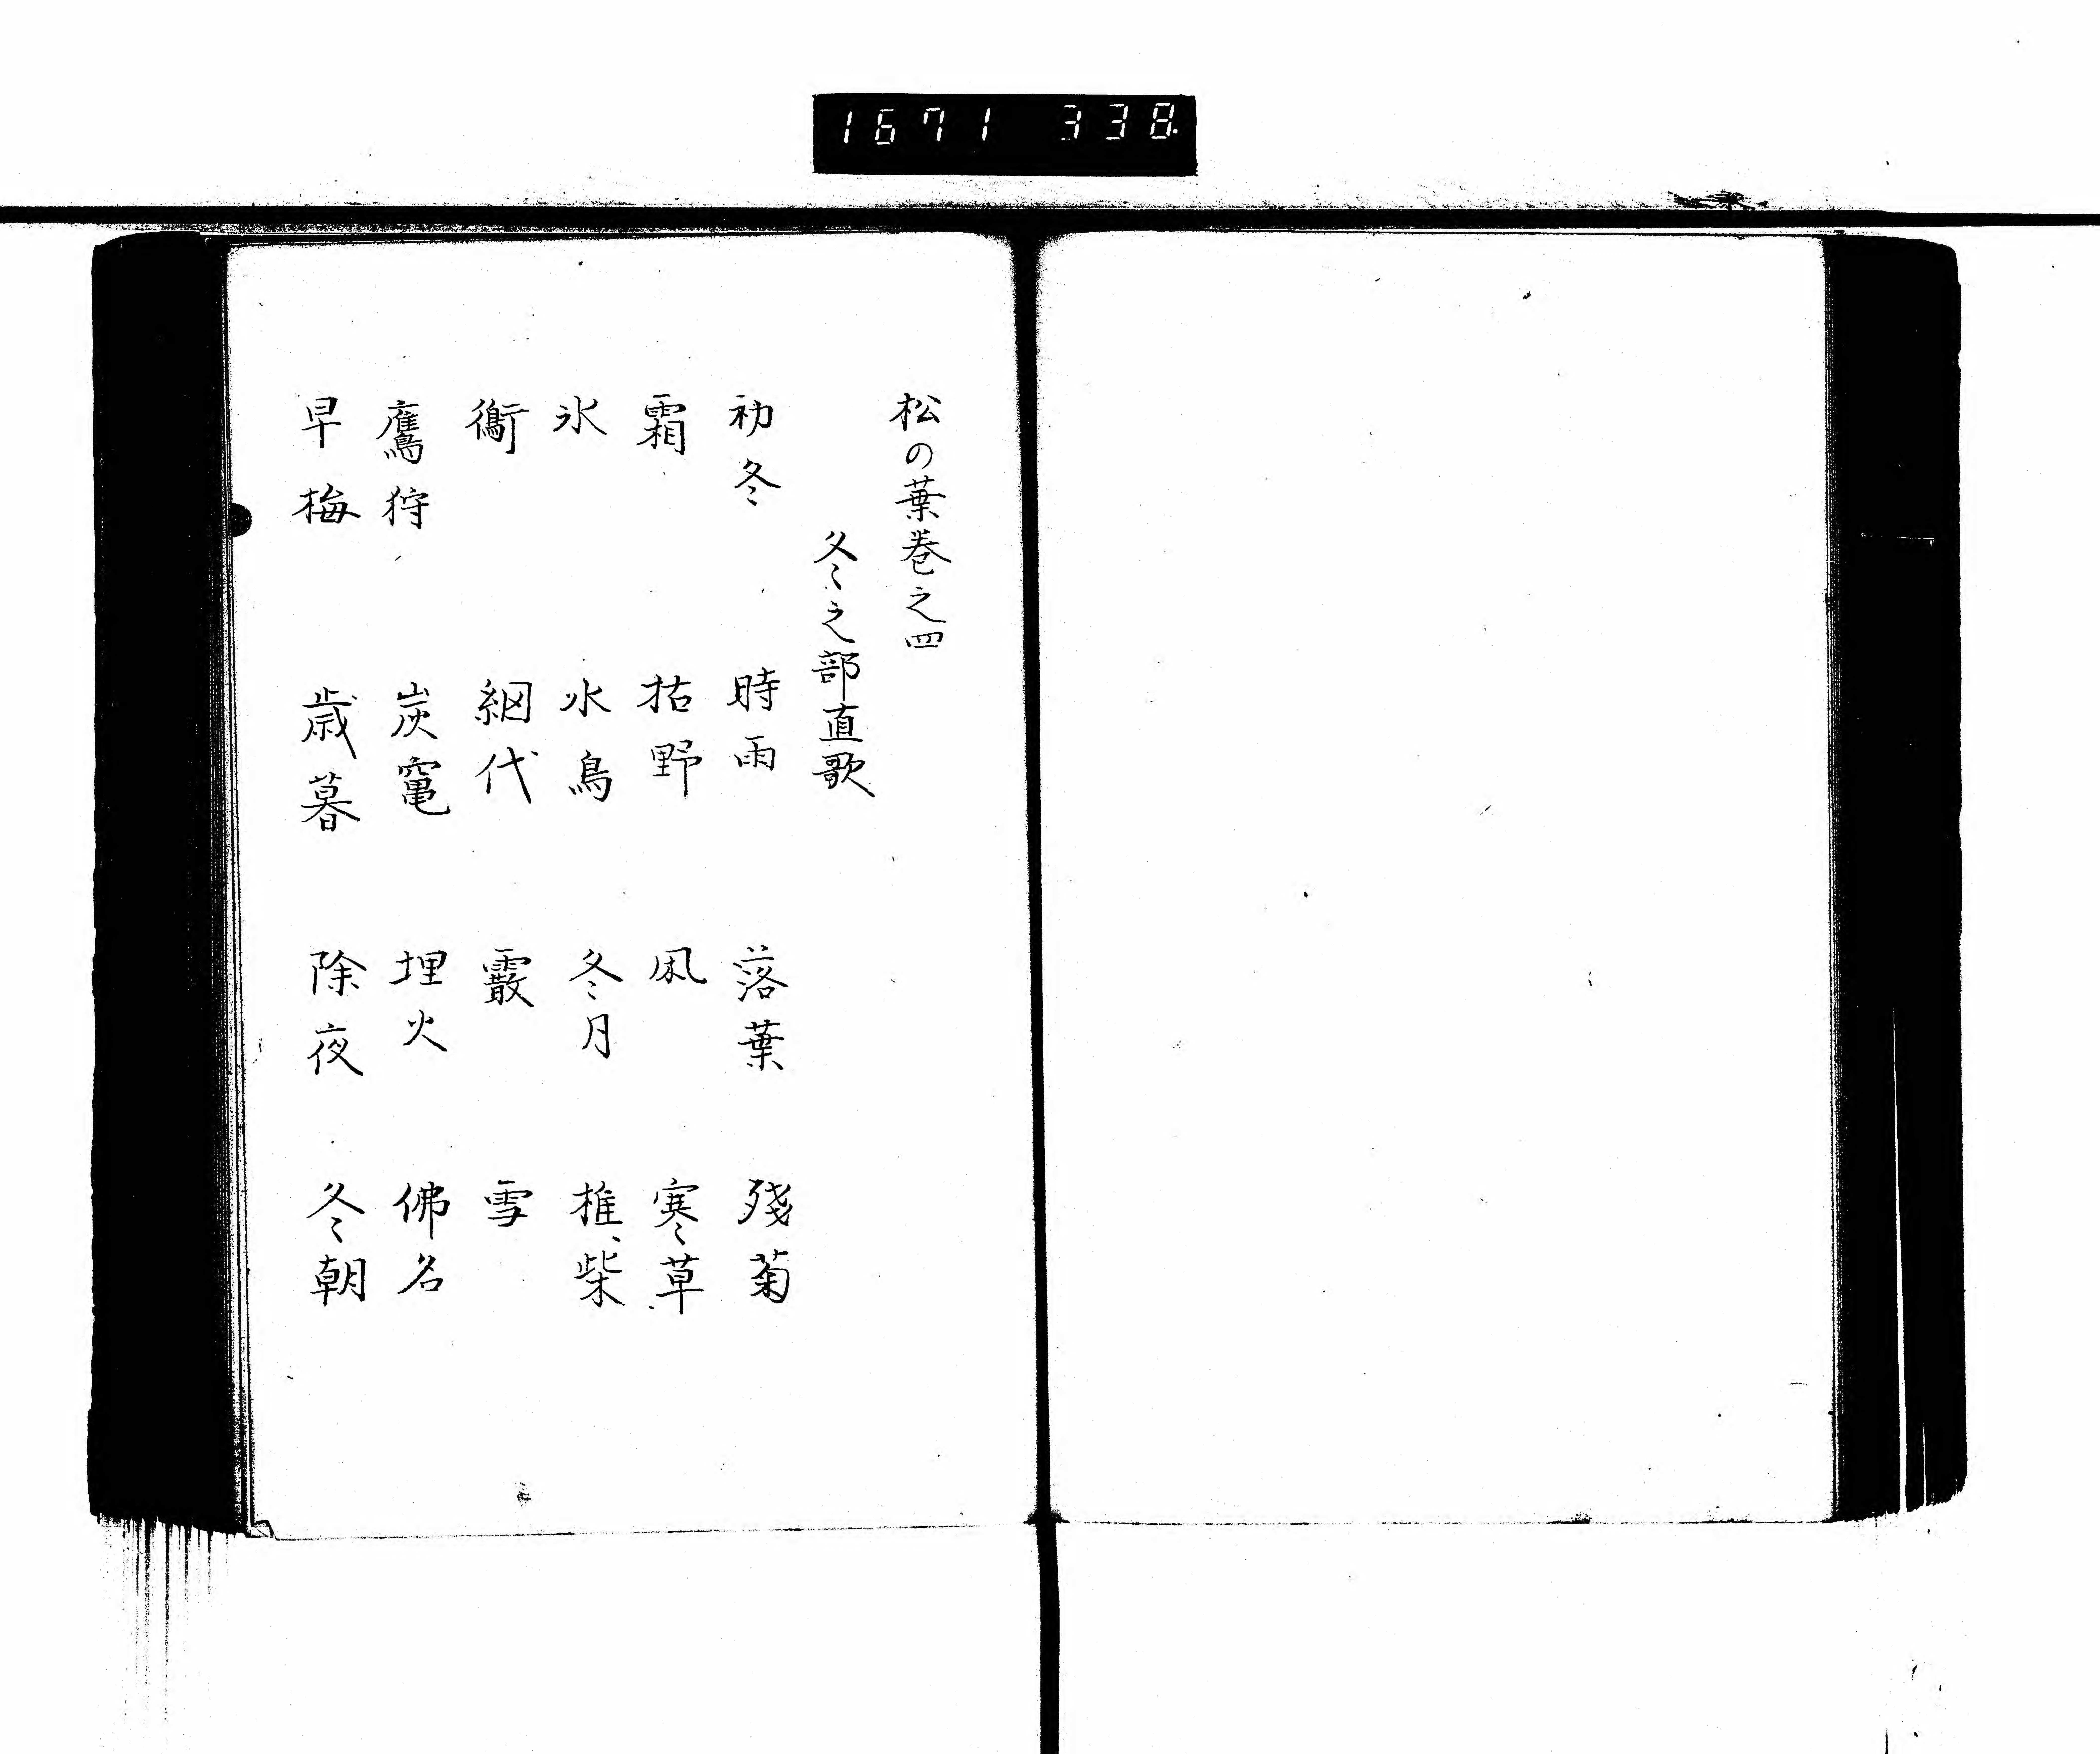 1671 338
松の葉巻之四
冬之部直歌
初冬 時雨 落葉 残菊
霜 枯野 凩 寒草
氷 水鳥 冬月 椎柴
鵆 網代 霰 雪
鷹狩 炭竃 埋火 佛名
早梅 歳暮 除夜 冬朝